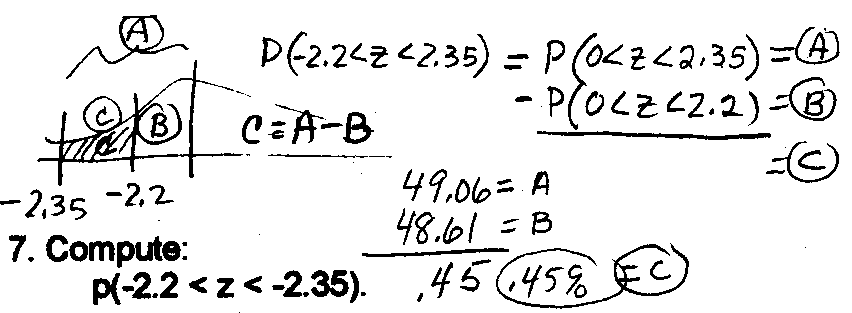 A
P(-2.2<z<2.35) = P(0<z<2.35) = A
- P(0<z<2.2) = B
= C
C B C = A-B
-2.35 -2.2
49.06 = A
48.61 = B
.45 .45% = C
7. Compute:
p(-2.2 < z < -2.35).